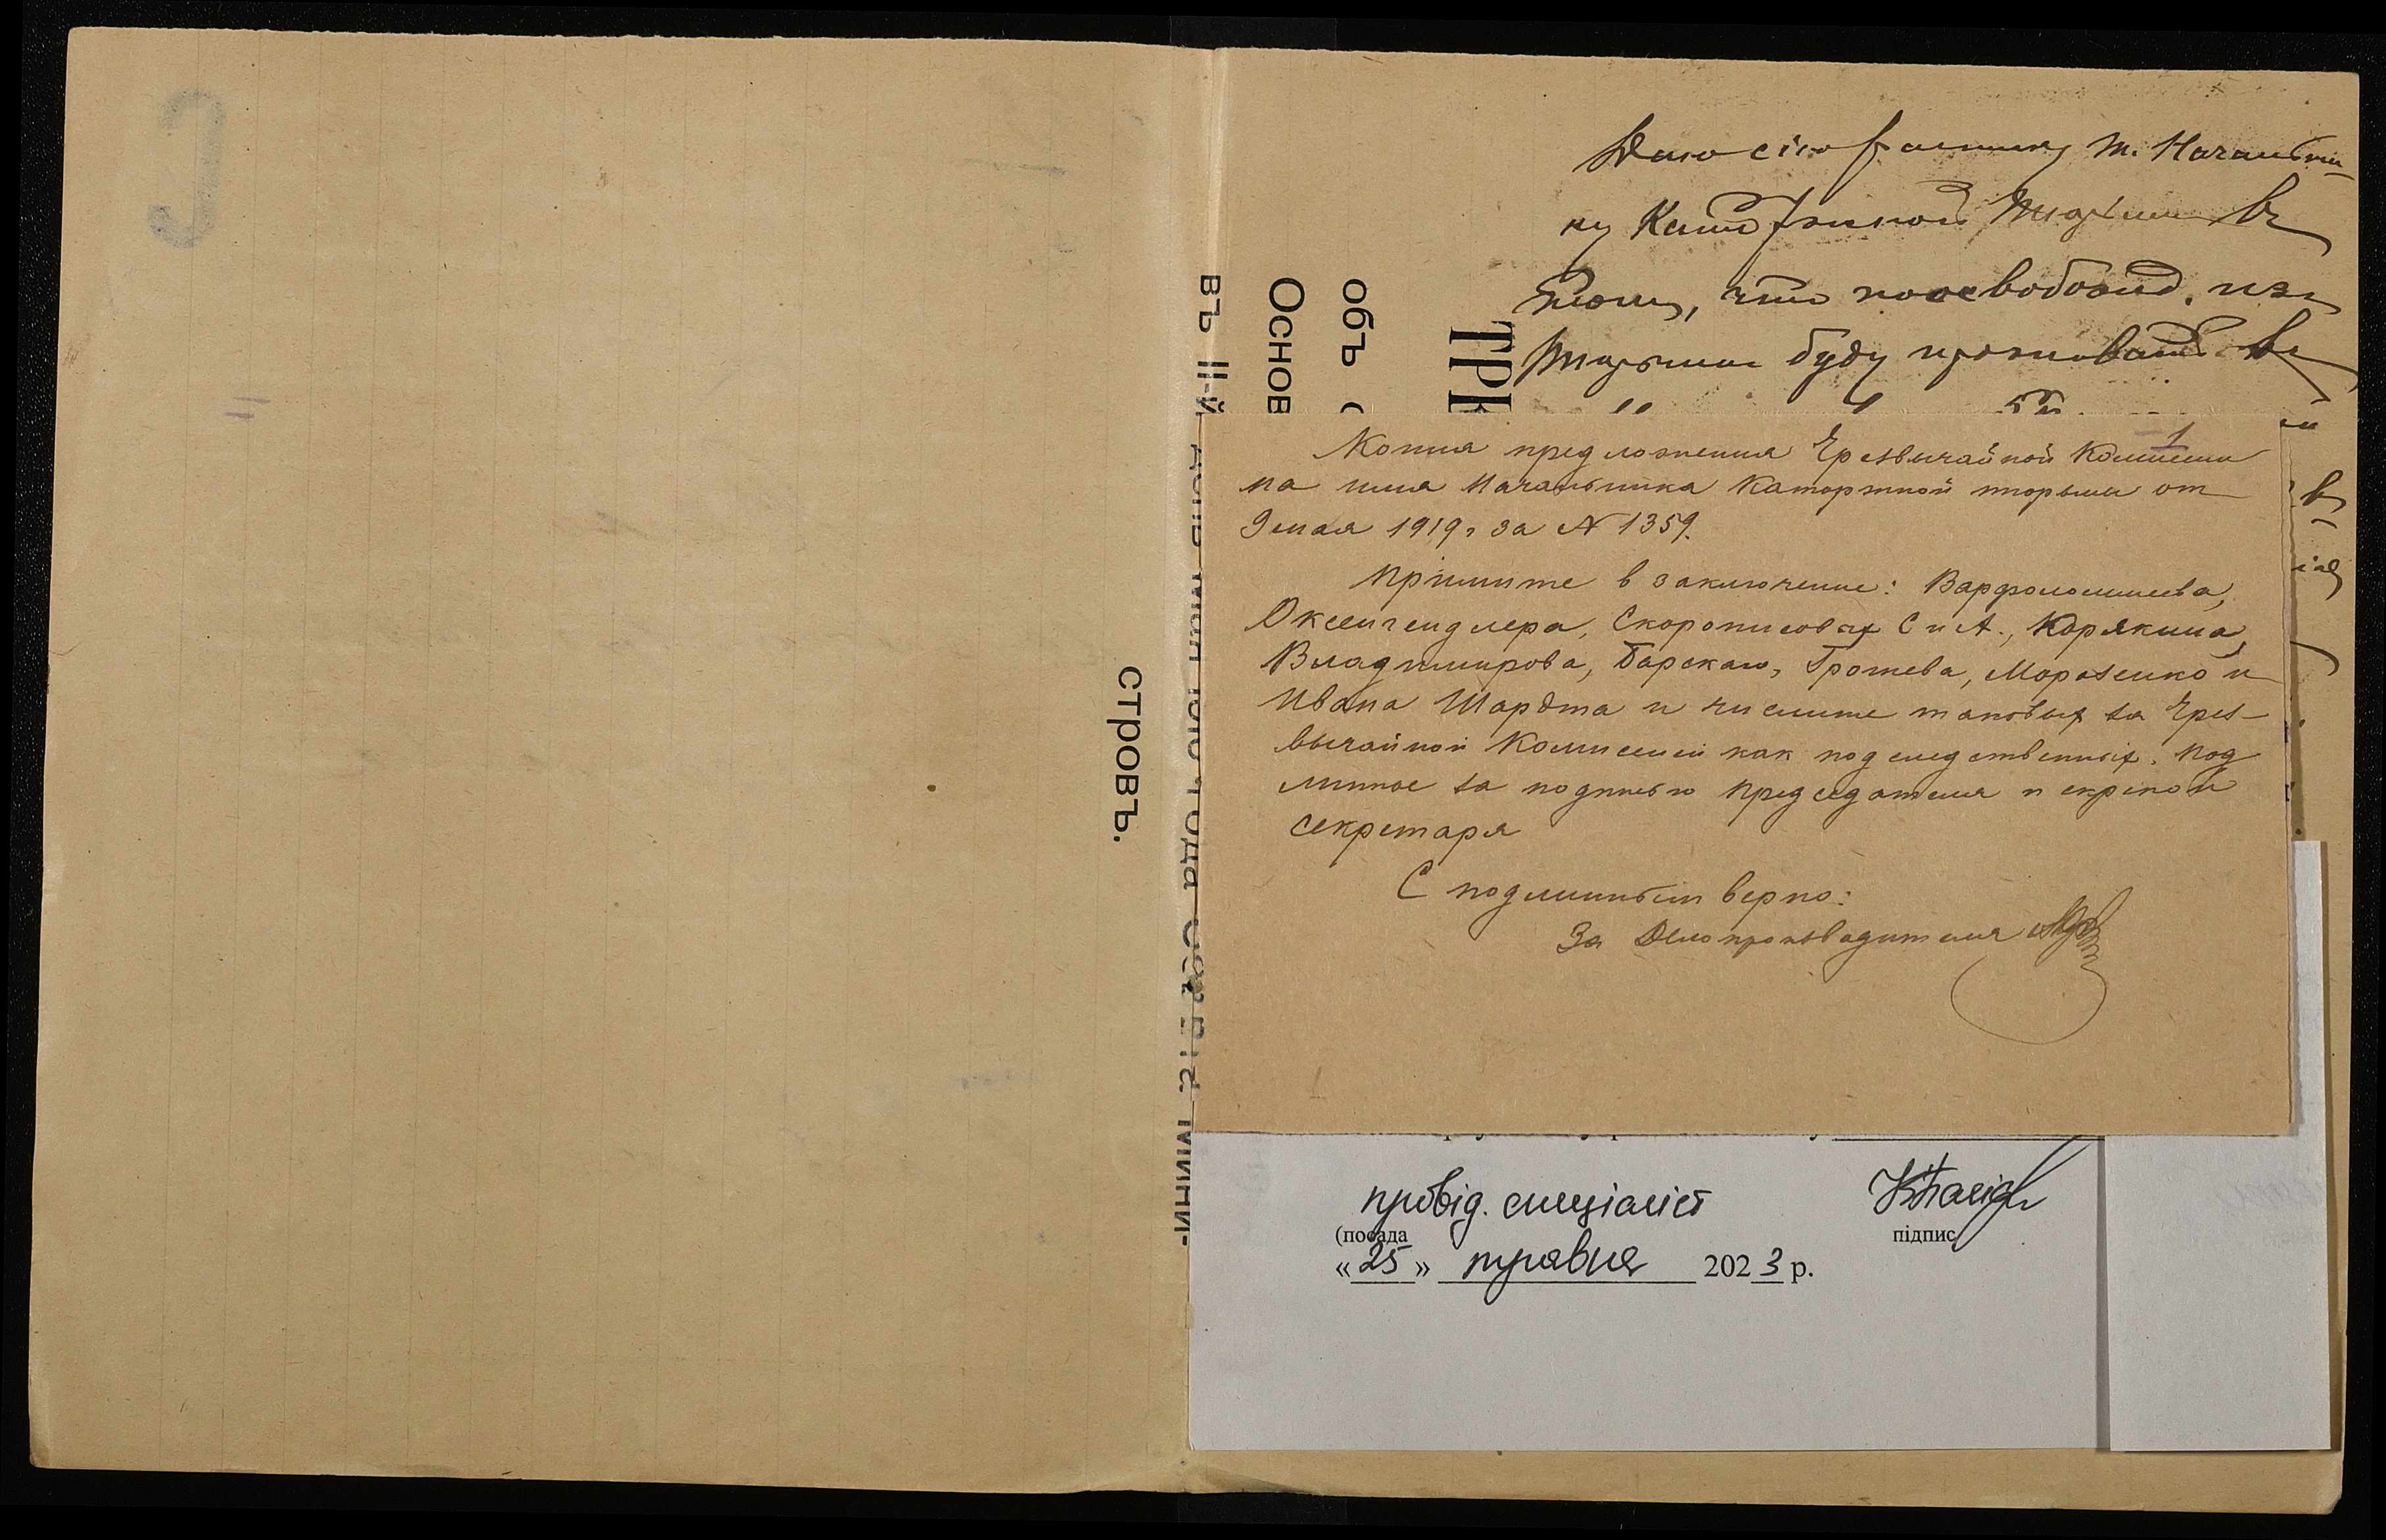 Даю сію расписку т. Начальни-
ку Каторжной Тюрьмы в
том, что по освобожд. из
тюрьмы буду проживать в
1
Копия предложения Чрезвычайной Комиссии
на имя Начальника Каторжной тюрьмы от
9 мая 1919 г за № 1359.
Примите в заключение:
Оксенгендлера, Скорописовых С и А., Корякина,
Владимирова, Барскаго, Громева, Морозенко и
Ивана Шардта и числите таковых за Чрез-
вычайной Комиссией как подследственных. Под
линное за подписью Председателя и скрепой
секретаря
С подлинным верно:
За Делопроизводителя
объ
Основ
въ II-й
стровъ.
провід. спеціаліст
(посада
підпис
«25» травня 2023 р.